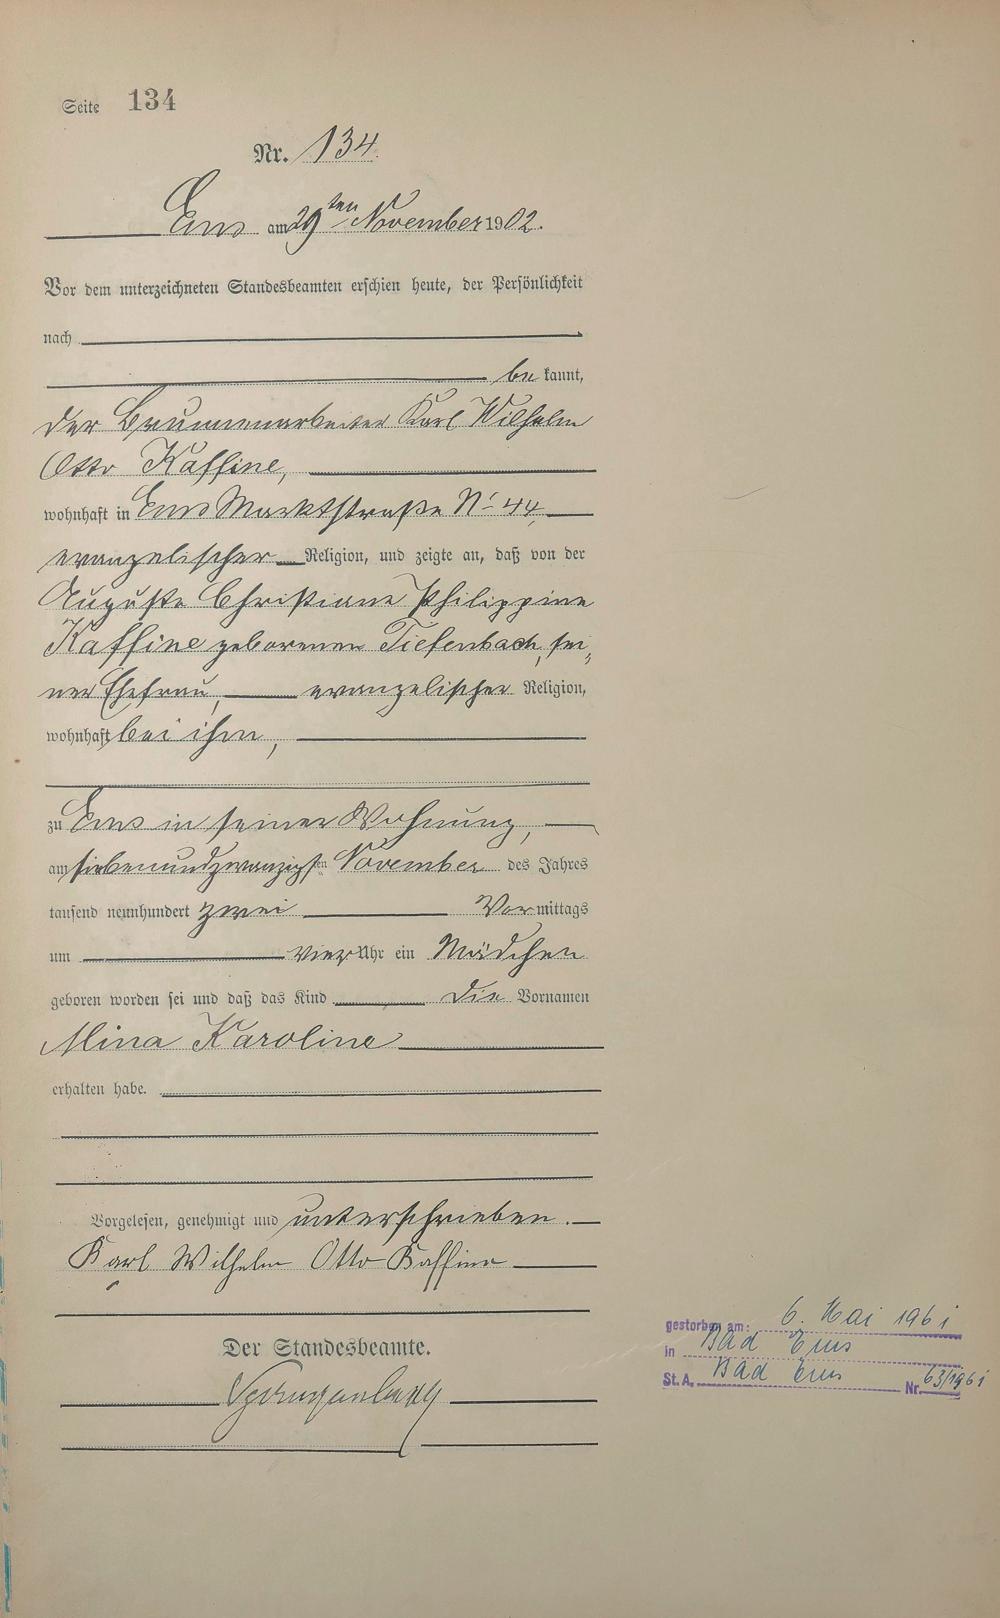 Seite 134
Nr. 134.
Ems am 29ten November 1902.
Vor dem unterzeichneten Standesbeamten erschien heute, der Persönlichkeit
nach
be kannt,
der Brunnenarbeiter Karl Wilhelm
Otto Kaffine,
wohnhaft in Ems Marktstraße No 44,
evangelischer Religion, und zeigte an, daß von der
Auguste Christiane Philippine
Kaffine geborenen Tiefenbach, sei„
ner Ehefrau, evangelischer Religion,
wohnhaft bei ihm,
zu Ems in seiner Wohnung,
am siebenundzwanzigsten November des Jahres
tausend neunhundert zwei Vor mittags
um vier Uhr ein Mädchen
geboren worden sei und daß das Kind die Vornamen
Mina Karoline
erhalten habe.
Vorgelesen, genehmigt und unterschrieben.
Karl Wilhelm Otto Kaffine
Der Standesbeamte.
gestorben am: 6. Mai 1961
in Bad Ems
St. A. Bad Ems Nr. 63/1961